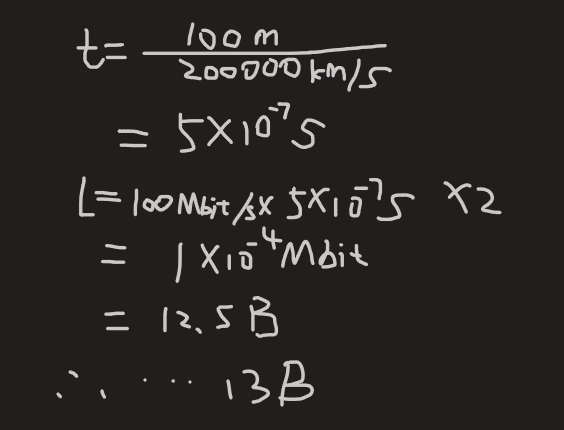 t= 100m / 200000km/s
= 5×10⁻⁷s
L=100Mbit/s× 5×10⁻⁷s ×2
= 1×10⁻⁴Mbit
= 12.5B
∴ ... 13B